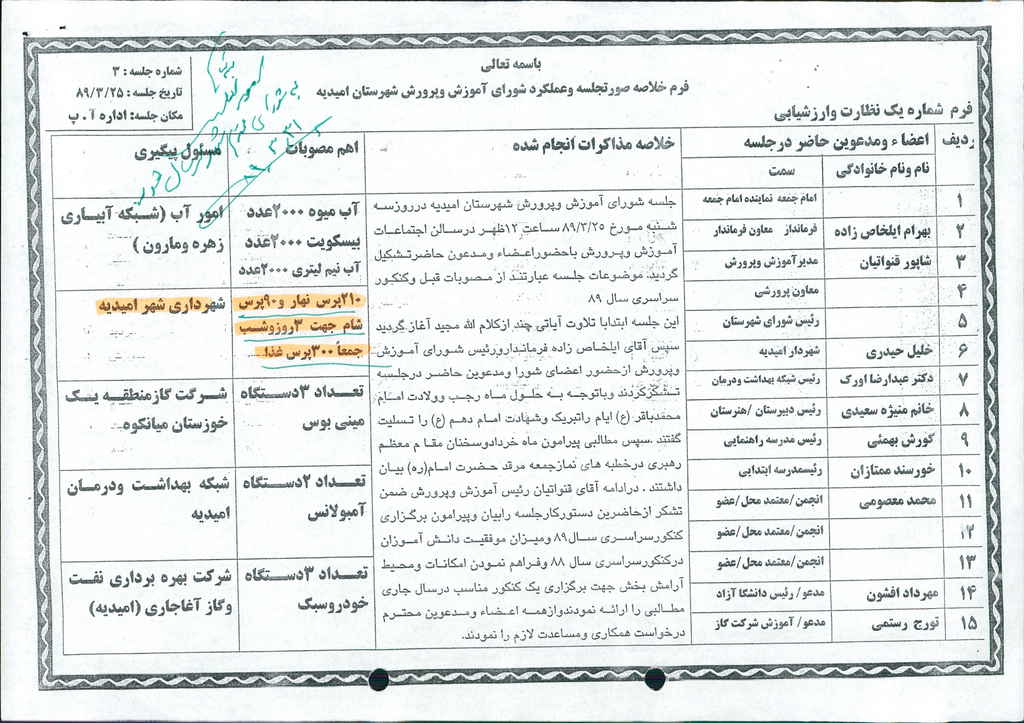 باسمه تعالی
فرم خلاصه صورتجلسه وعملکرد شورای آموزش وپرورش شهرستان امیدیه
فرم شماره یک نظارت وارزشیابی
شماره جلسه : ۳
تاریخ جلسه : ۸۹/۳/۲۵
مکان جلسه: اداره آ . پ
ردیف
اعضاء ومدعوین حاضر درجلسه
نام ونام خانوادگی
سمت
خلاصه مذاکرات انجام شده
اهم مصوبات
مسئول پیگیری
۱ امام جمعه نماینده امام جمعه
۲ بهرام ایلخاص زاده فرماندار معاون فرماندار
۳ شاپور قنواتیان مدیرآموزش وپرورش
۴ معاون پرورشی
۵ رئیس شورای شهرستان
۶ خلیل حیدری شهردار امیدیه
۷ دکتر عبدارضا اورک رئیس شبکه بهداشت ودرمان
۸ خانم منیژه سعیدی رئیس دبیرستان /هنرستان
۹ کورش بهمئی رئیس مدرسه راهنمایی
۱۰ خورسند ممتازان رئیسمدرسه ابتدایی
۱۱ محمد معصومی انجمن/معتمد محل/عضو
۱۲ انجمن/معتمد محل/عضو
۱۳ انجمن/معتمد محل/عضو
۱۴ مهرداد افشون مدعو/ رئیس دانشگا آزاد
۱۵ تورج رستمی مدعو/ آموزش شرکت گاز
جلسه شورای آموزش وپرورش شهرستان امیدیه درروزسه
شنبه مورخ ۸۹/۳/۲۵ ساعت ۱۲ظهر درسالن اجتماعات
آموزش وپرورش باحضوراعضاء ومدعون حاضرتشکیل
گردید. موضوعات جلسه عبارتند از مصوبات قبل وکنکور
سراسری سال ۸۹
این جلسه ابتدابا تلاوت آیاتی چند ازکلام الله مجید آغاز گردید
سپس آقای ایلخاص زاده فرماندارورئیس شورای آموزش
وپرورش ازحضور اعضای شورا ومدعوین حاضر درجلسه
تشکرکردند وباتوجه به حلول ماه رجب وولادت امام
محمدباقر (ع) ایام راتبریک وشهادت امام دهم (ع) را تسلیت
گفتند .سپس مطالبی پیرامون ماه خردادوسخنان مقام معظم
رهبری درخطبه های نمازجمعه مرقد حضرت امام(ره) بیان
داشتند . درادامه آقای قنواتیان رئیس آموزش وپرورش ضمن
تشکر ازحاضرین دستورکارجلسه رابیان وپیرامون برگزاری
کنکورسراسری سال۸۹ ومیزان موفقیت دانش آموزان
درکنکورسراسری سال ۸۸ وفراهم نمودن امکانات ومحیط
آرامش بخش جهت برگزاری یک کنکور مناسب درسال جاری
مطالبی را ارائه نمودندوازهمه اعضاء ومدعوین محترم
درخواست همکاری ومساعدت لازم را نمودند.
آب میوه ۲۰۰۰عدد
بیسکویت ۲۰۰۰عدد
آب نیم لیتری ۲۰۰۰عدد
امور آب (شبکه آبیاری
زهره ومارون )
۲۱۰پرس نهار و۹۰پرس
شام جهت ۳روزوشب
جمعاً ۳۰۰پرس غذا.
شهرداری شهر امیدیه
تعداد ۳دستگاه
مینی بوس
شرکت گازمنطقه یک
خوزستان میانکوه.
تعداد ۲دستگاه
آمبولانس
شبکه بهداشت ودرمان
امیدیه
تعداد ۳دستگاه
خودروسبک
شرکت بهره برداری نفت
وگاز آغاجاری (امیدیه)